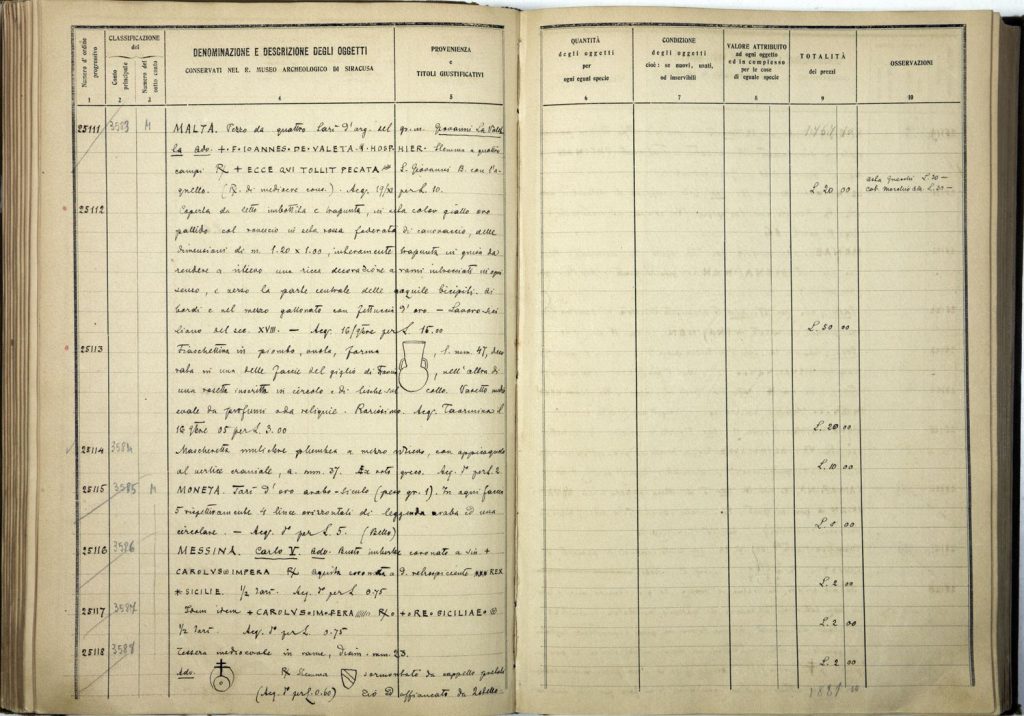 Numero d'ordine progressivo
CLASSIFICAZIONE del
Conto principale
Numero del sotto conto
DENOMINAZIONE E DESCRIZIONE DEGLI OGGETTI
CONSERVATI NEL R. MUSEO ARCHEOLOGICO DI SIRACUSA
PROVENIENZA
e
TITOLI GIUSTIFICATIVI
QUANTITÀ
degli oggetti
per
ogni egual specie
CONDIZIONE
degli oggetti
cioè: se nuovi, usati,
od inservibili
VALORE ATTRIBUITO
ad ogni oggetto
ed in complesso
per le cose
di eguale specie
TOTALITÀ
dei prezzi
OSSERVAZIONI
1 2 3 4 5 6 7 8 9 10
25111 3583 M MALTA. Pezzo da quattro Tarì d'arg. del gr. m. Giovanni La Valet
la Adv. +·F·IOANNES·DE·VALETA·M·HOSP HIER· Stemma a quattro
campi R + ECCE QVI TOLLIT PECATA S. Giovanni B. con l'a-
gnello. (R. di mediocre cons.). Acq. per L. 10. L. 20 00
25112 Coperta da letto imbottita e trapunta, in seta color giallo oro
pallido col rovescio in seta rossa foderata di canovaccio, delle
dimensioni di m. 1.20 x 1.00, interamente trapunta in guisa da
rendere a rilievo una ricca decorazione a rami intrecciati in ogni
senso, e verso la parte centrale delle aquile bicipiti. Ai
bordi e nel mezzo gallonata con fettuccia d'oro. — Lavoro sici
liano del sec. XVIII. — Acq. 16/ per L. 15.00 L. 50 00
25113 Fiaschettina in piombo, vuota, forma , l. mm. 47, deco
rata in una delle faccie del giglio di , nell'altra di
una rosetta inscritta in circolo e di sul collo. Vasetto medi
evale da profumi o da reliquie. Rarissimo. Acq. Taormina L
16 05 per L. 3.00 L. 20 00
25114 3584 Mascheretta muliebre plumbea a mezzo rilievo, con appiccagnolo
al vertice craniale, a. mm. 37. Ex voto greco. Acq. per L. 2 L. 10 00
25115 3585 M MONETA. Tarì d'oro arabo-siculo (peso gr. 1). In ogni faccia
rispettivamente 4 linee orizzontali di leggenda araba ed una
circolare. — Acq. per L. 5. (Bello)
25116 3586 MESSINA. Carlo V. Adv. Busto coronato a sin +
CAROLVS IMPERA R aquila coronata a d. retrospiciente REX
SICILIE. 1/2 Tarì. Acq. per L. 0.75 L. 2 00
25117 3587 Idem idem + CAROLVS·IMPERA R +·RE·SICILIAE·
1/2 Tarì. Acq. per L. 0.75 L. 2 00
25118 3588 Tessera medioevale in rame, diam. mm. 23. L. 2 00
Adv. R Stemma sormontato da cappello
(Acq. per L. 0.60) ed affiancato da